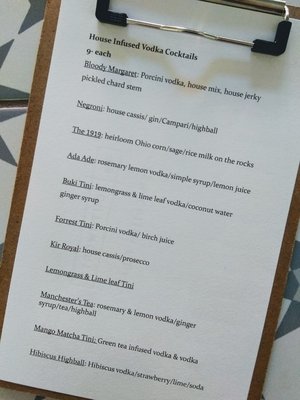 House Infused Vodka Cocktails
9- each
Bloody Margaret: Porcini vodka, house mix, house jerky
pickled chard stem
Negroni: house cassis/ gin/Campari/highball
The 1919: heirloom Ohio corn/sage/rice milk on the rocks
Ada Ade: rosemary lemon vodka/simple syrup/lemon juice
Buki Tini: lemongrass & lime leaf vodka/coconut water
ginger syrup
Forrest Tini: Porcini vodka/ birch juice
Kit Royal: house cassis/prosecco
Lemongrass & Lime leaf Tini
Manchester's Tea: rosemary & lemon vodka/ginger
syrup/tea/highball
Mango Matcha Tini: Green tea infused vodka & vodka
Hibiscus Highball: Hibiscus vodka/strawberry/lime/soda